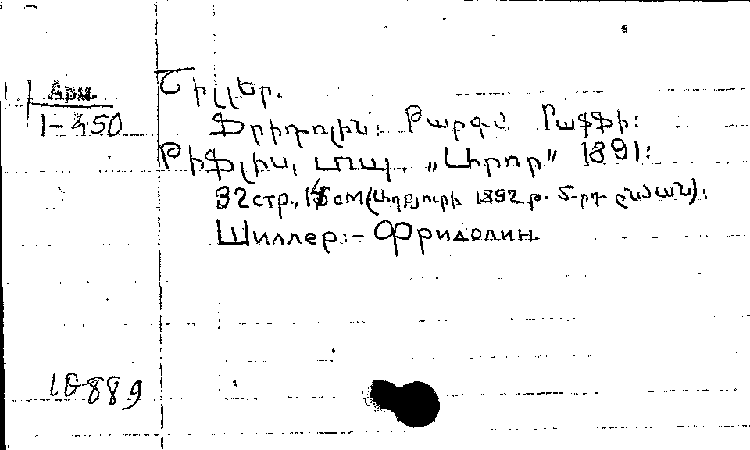 Арм.
1-450
Շիլլեր.
Ֆրիդոլին: Թարգմ. Րաֆֆի:
Թիֆլիս, տպ. „Արոր" 1891:
32 стр., 15 см (Աղբյուրի 1892 թ. 5-րդ ):
Шиллер:- Фридолин
16889